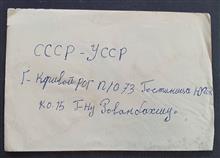 СССР - УССР
Г- Кривой РОГ П/О 73 Гостиница
КО. 15 Г-ну